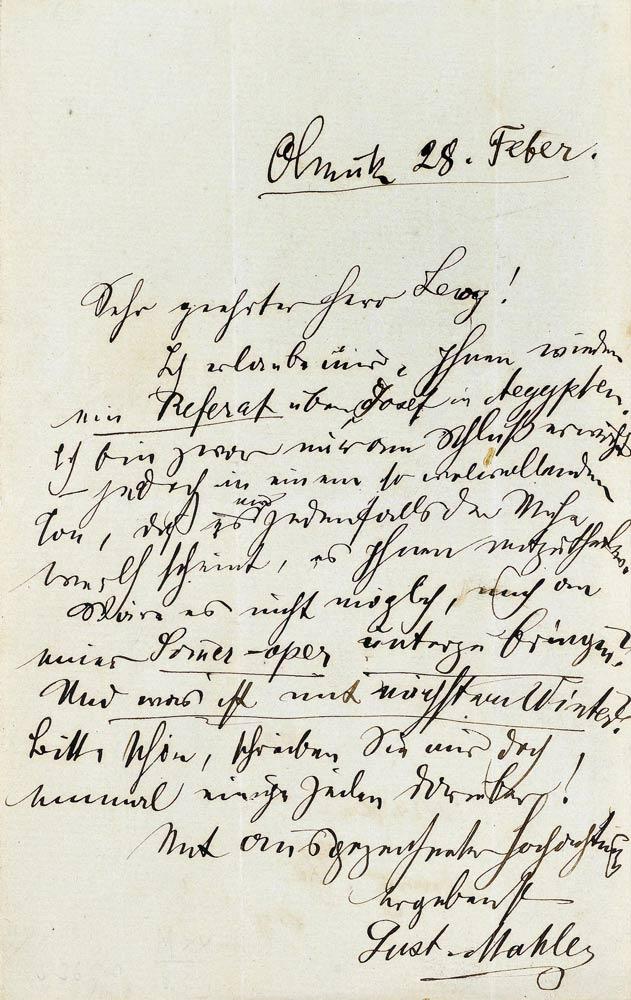 Olmütz 28. Feber.
Sehr geehrter Herr Levy!
Ich erlaube mir, Ihnen wieder
ein Referat über „Josef in Aegypten.
Ich bin zwar nur am Schluß erwähnt
– jedoch in einem so wolwollenden
Ton, daß es mir jedenfalls der Mühe
werth scheint, es Ihnen mitzutheilen.
Wäre es nicht möglich, mich an
einer Somer-oper unterzubringen?
Und was ist mit nächstem Winter?
Bitte schön, schreiben Sie mir doch
einmal einige Zeilen darüber!
Mit ausgezeichneter Hochachtung
ergebenst
Gust. Mahler